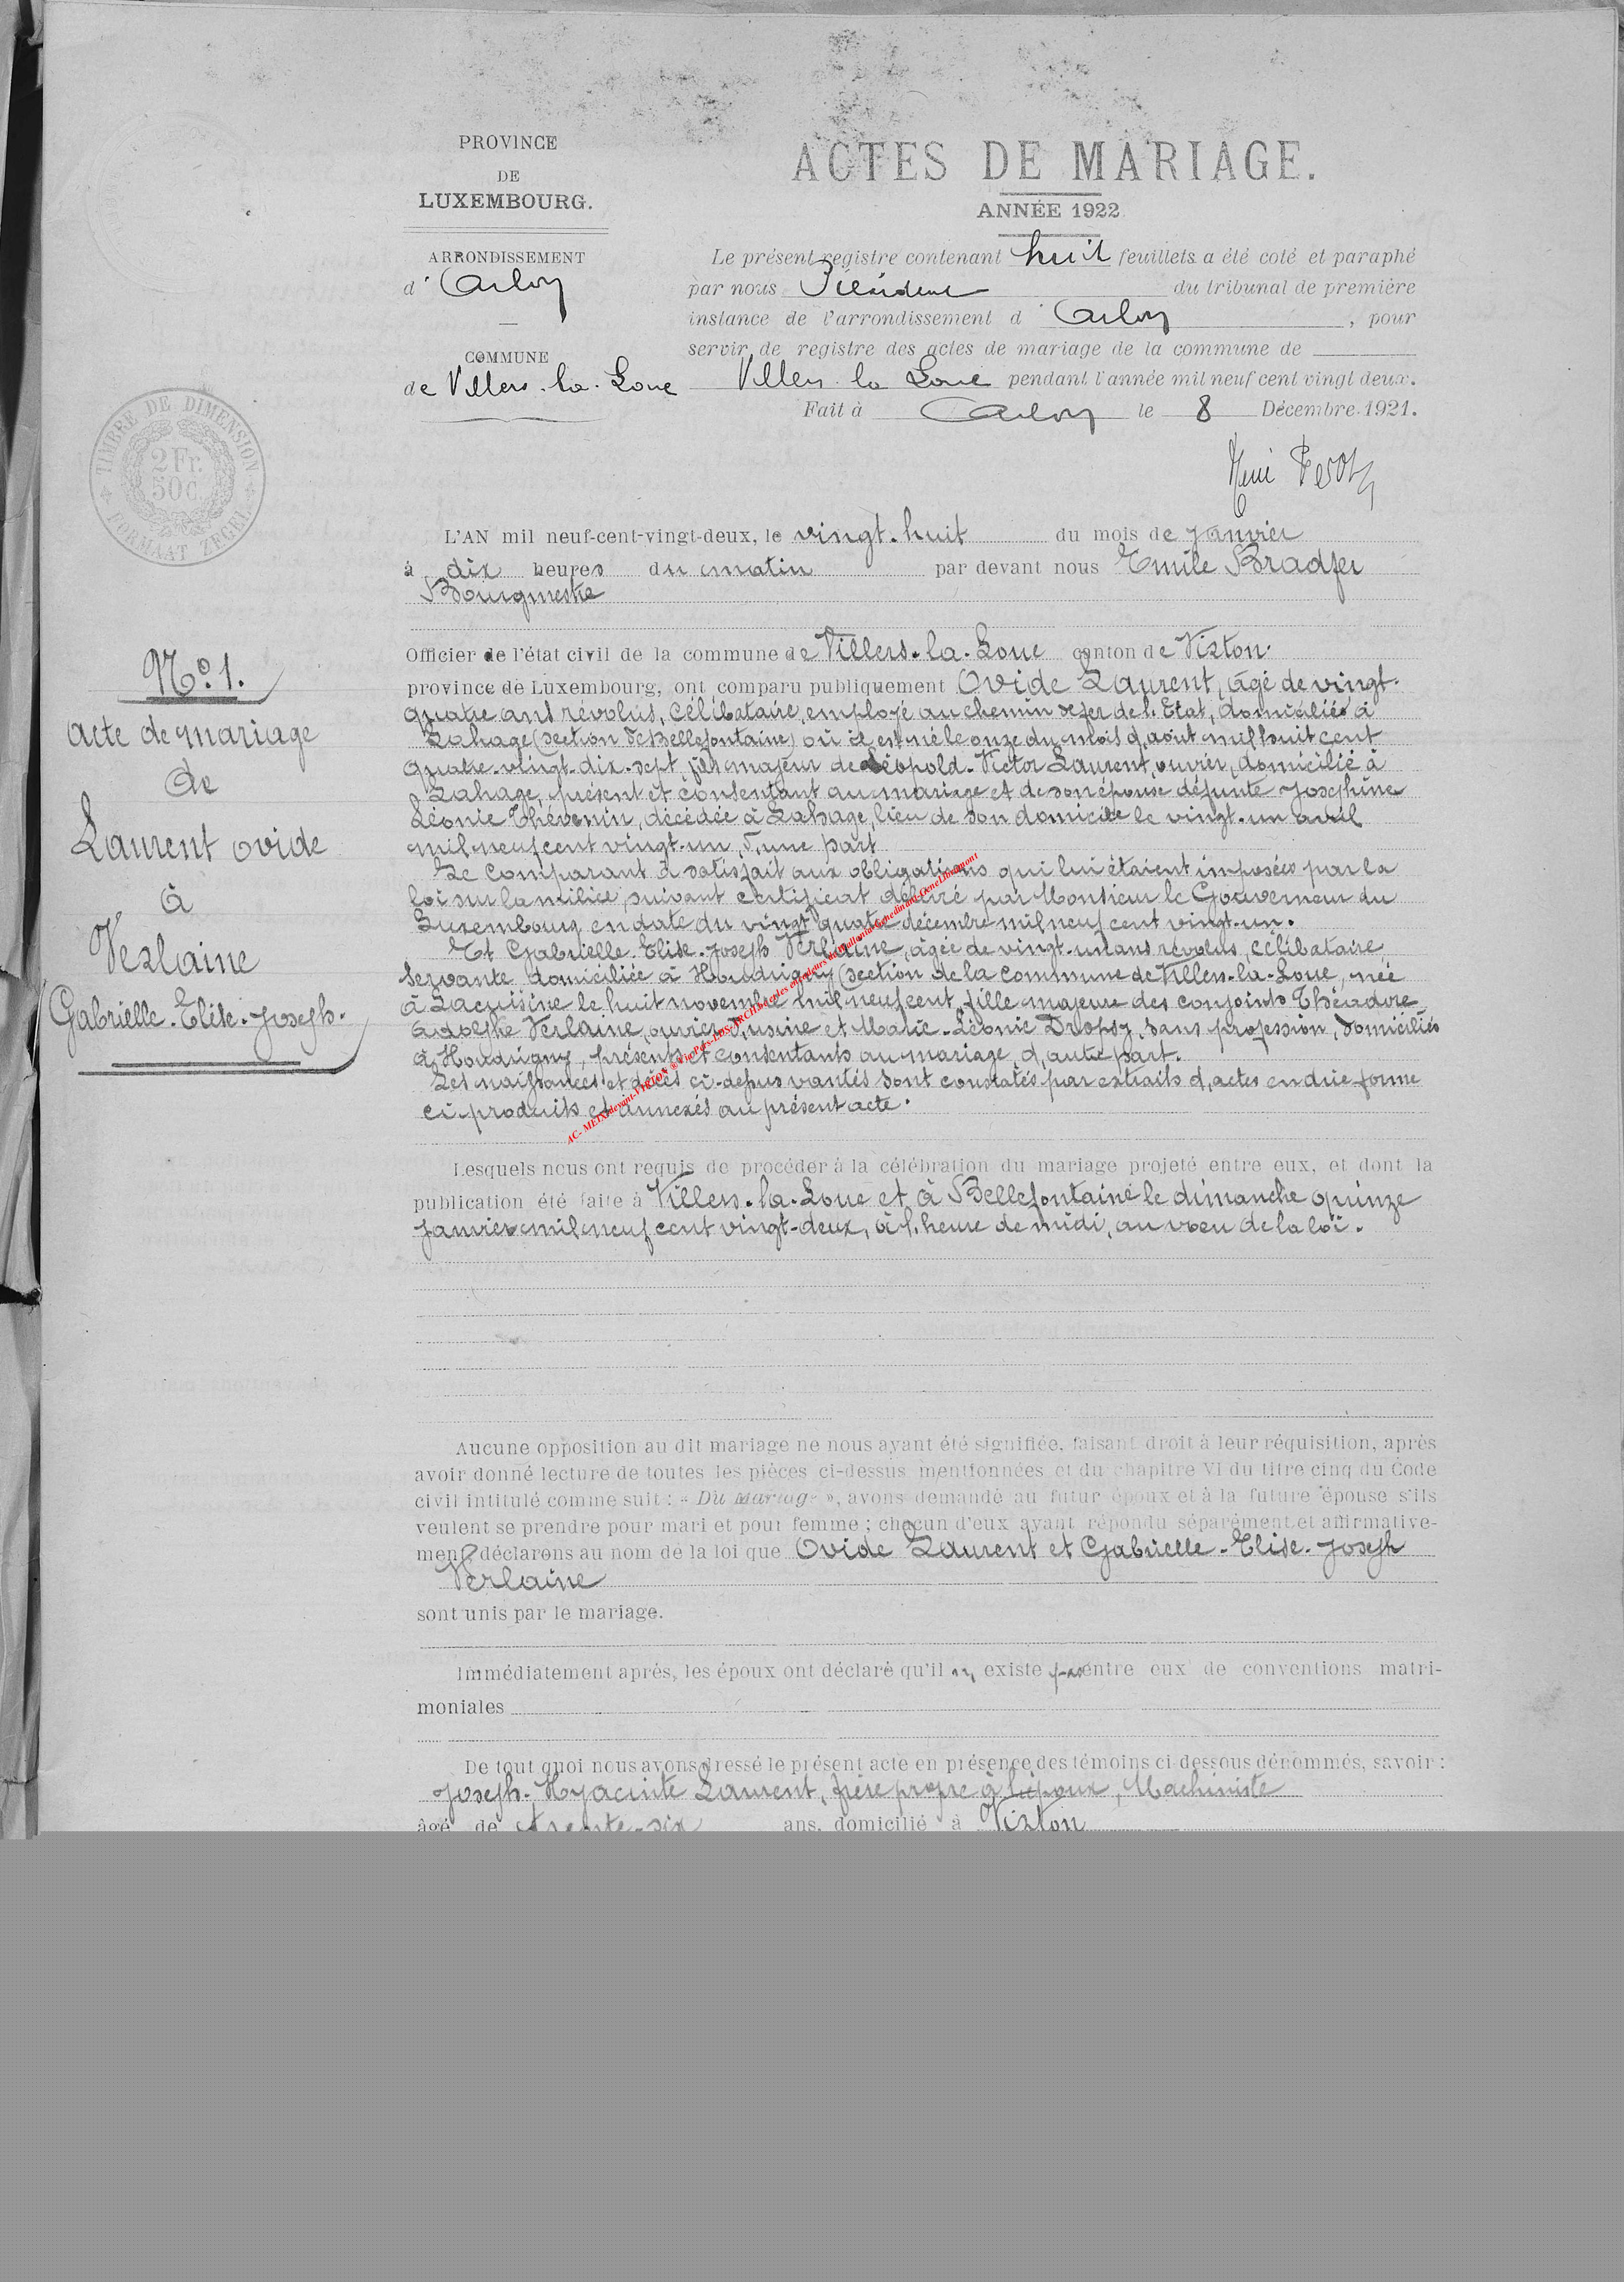 PROVINCE
DE
LUXEMBOURG.
ARRONDISSEMENT
d' Arlon
COMMUNE
de Villers-la-Loue
ACTES DE MARIAGE.
ANNÉE 1922
Le présent registre contenant huit feuillets a été coté et paraphé
par nous Président du tribunal de première
instance de l'arrondissement d Arlon, pour
servir de registre des actes de mariage de la commune de
Villers-la-Loue pendant l'année mil neuf cent vingt deux.
Fait à Arlon le 8 Décembre 1921.
TIMBRE DE DIMENSION
2 Fr.
50 c.
FORMAAT ZEGEL
L'AN mil neuf-cent-vingt-deux, le vingt-huit du mois de Janvier
à dix heures du matin par devant nous Emile Bradfer
Bourgmestre
Officier de l'état civil de la commune de Villers-la-Loue canton de Virton.
province de Luxembourg, ont comparu publiquement Ovide Laurent, âgé de vingt-
quatre ans révolus, célibataire, employé au chemin de fer de l'Etat, domicilié à
Lahage (section de Bellefontaine) où il est né le onze du mois d'août mil huit cent
quatre-vingt-dix-sept, fils majeur de Léopold-Victor Laurent, ouvrier, domicilié à
Lahage, présent et consentant au mariage et de son épouse défunte Joséphine
Léonie Thévenin, décédée à Lahage, lieu de son domicile le vingt-un avril
mil neuf cent vingt-un, d'une part
Le comparant a satisfait aux obligations qui lui étaient imposées par la
loi sur la milice, suivant certificat délivré par Monsieur le Gouverneur du
Luxembourg en date du vingt quatre décembre mil neuf cent vingt-un.
Et Gabrielle-Elise-Joseph Verlaine, âgée de vingt-un ans révolus, célibataire,
servante, domiciliée à Houdrigny (section de la commune de Villers-la-Loue, née
à Lacuisine le huit novembre mil neuf cent, fille majeure des conjoints Théodore
Adolphe Verlaine, ouvrier d'usine et Marie-Léonie Dropsy, sans profession, domiciliés
à Houdrigny, présents et consentants au mariage, d'autre part.
Les naissances et décès ci-dessus vantés sont constatés par extraits d'actes en due forme
ci-produits et annexés au présent acte.
N° 1.
Acte de mariage
de
Laurent Ovide
à
Verlaine
Gabrielle-Elise-Joseph.
Lesquels nous ont requis de procéder à la célébration du mariage projeté entre eux, et dont la
publication été faite à Villers-la-Loue et à Bellefontaine le dimanche quinze
Janvier mil neuf cent vingt-deux, à l'heure de midi, au vœu de la loi.
Aucune opposition au dit mariage ne nous ayant été signifiée, faisant droit à leur réquisition, après
avoir donné lecture de toutes les pièces ci-dessus mentionnées et du chapitre VI du titre cinq du Code
civil intitulé comme suit : « Du Mariage », avons demandé au futur époux et à la future épouse s'ils
veulent se prendre pour mari et pour femme ; chacun d'eux ayant répondu séparément et affirmative-
ment déclarons au nom de la loi que Ovide Laurent et Gabrielle-Elise-Joseph
Verlaine
sont unis par le mariage.
Immédiatement après, les époux ont déclaré qu'il n'existe pas entre eux de conventions matri-
moniales
De tout quoi nous avons dressé le présent acte en présence des témoins ci dessous dénommés, savoir :
Joseph-Hyacinte Laurent, frère propre à l'époux, Machiniste
âgé de trente-six ans, domicilié à Virton